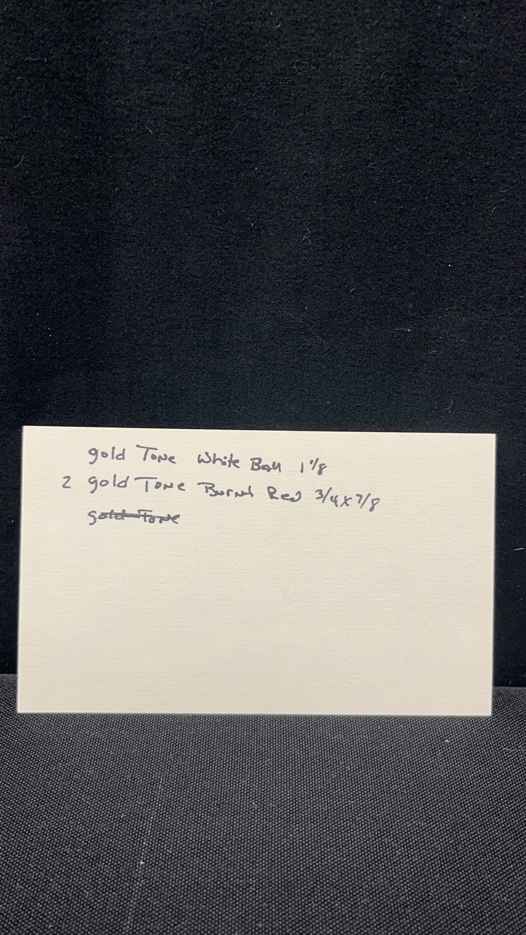 gold Tone White Ball 1 1/8
2 gold Tone Burnt Red 3/4 x 7/8
gold Tone